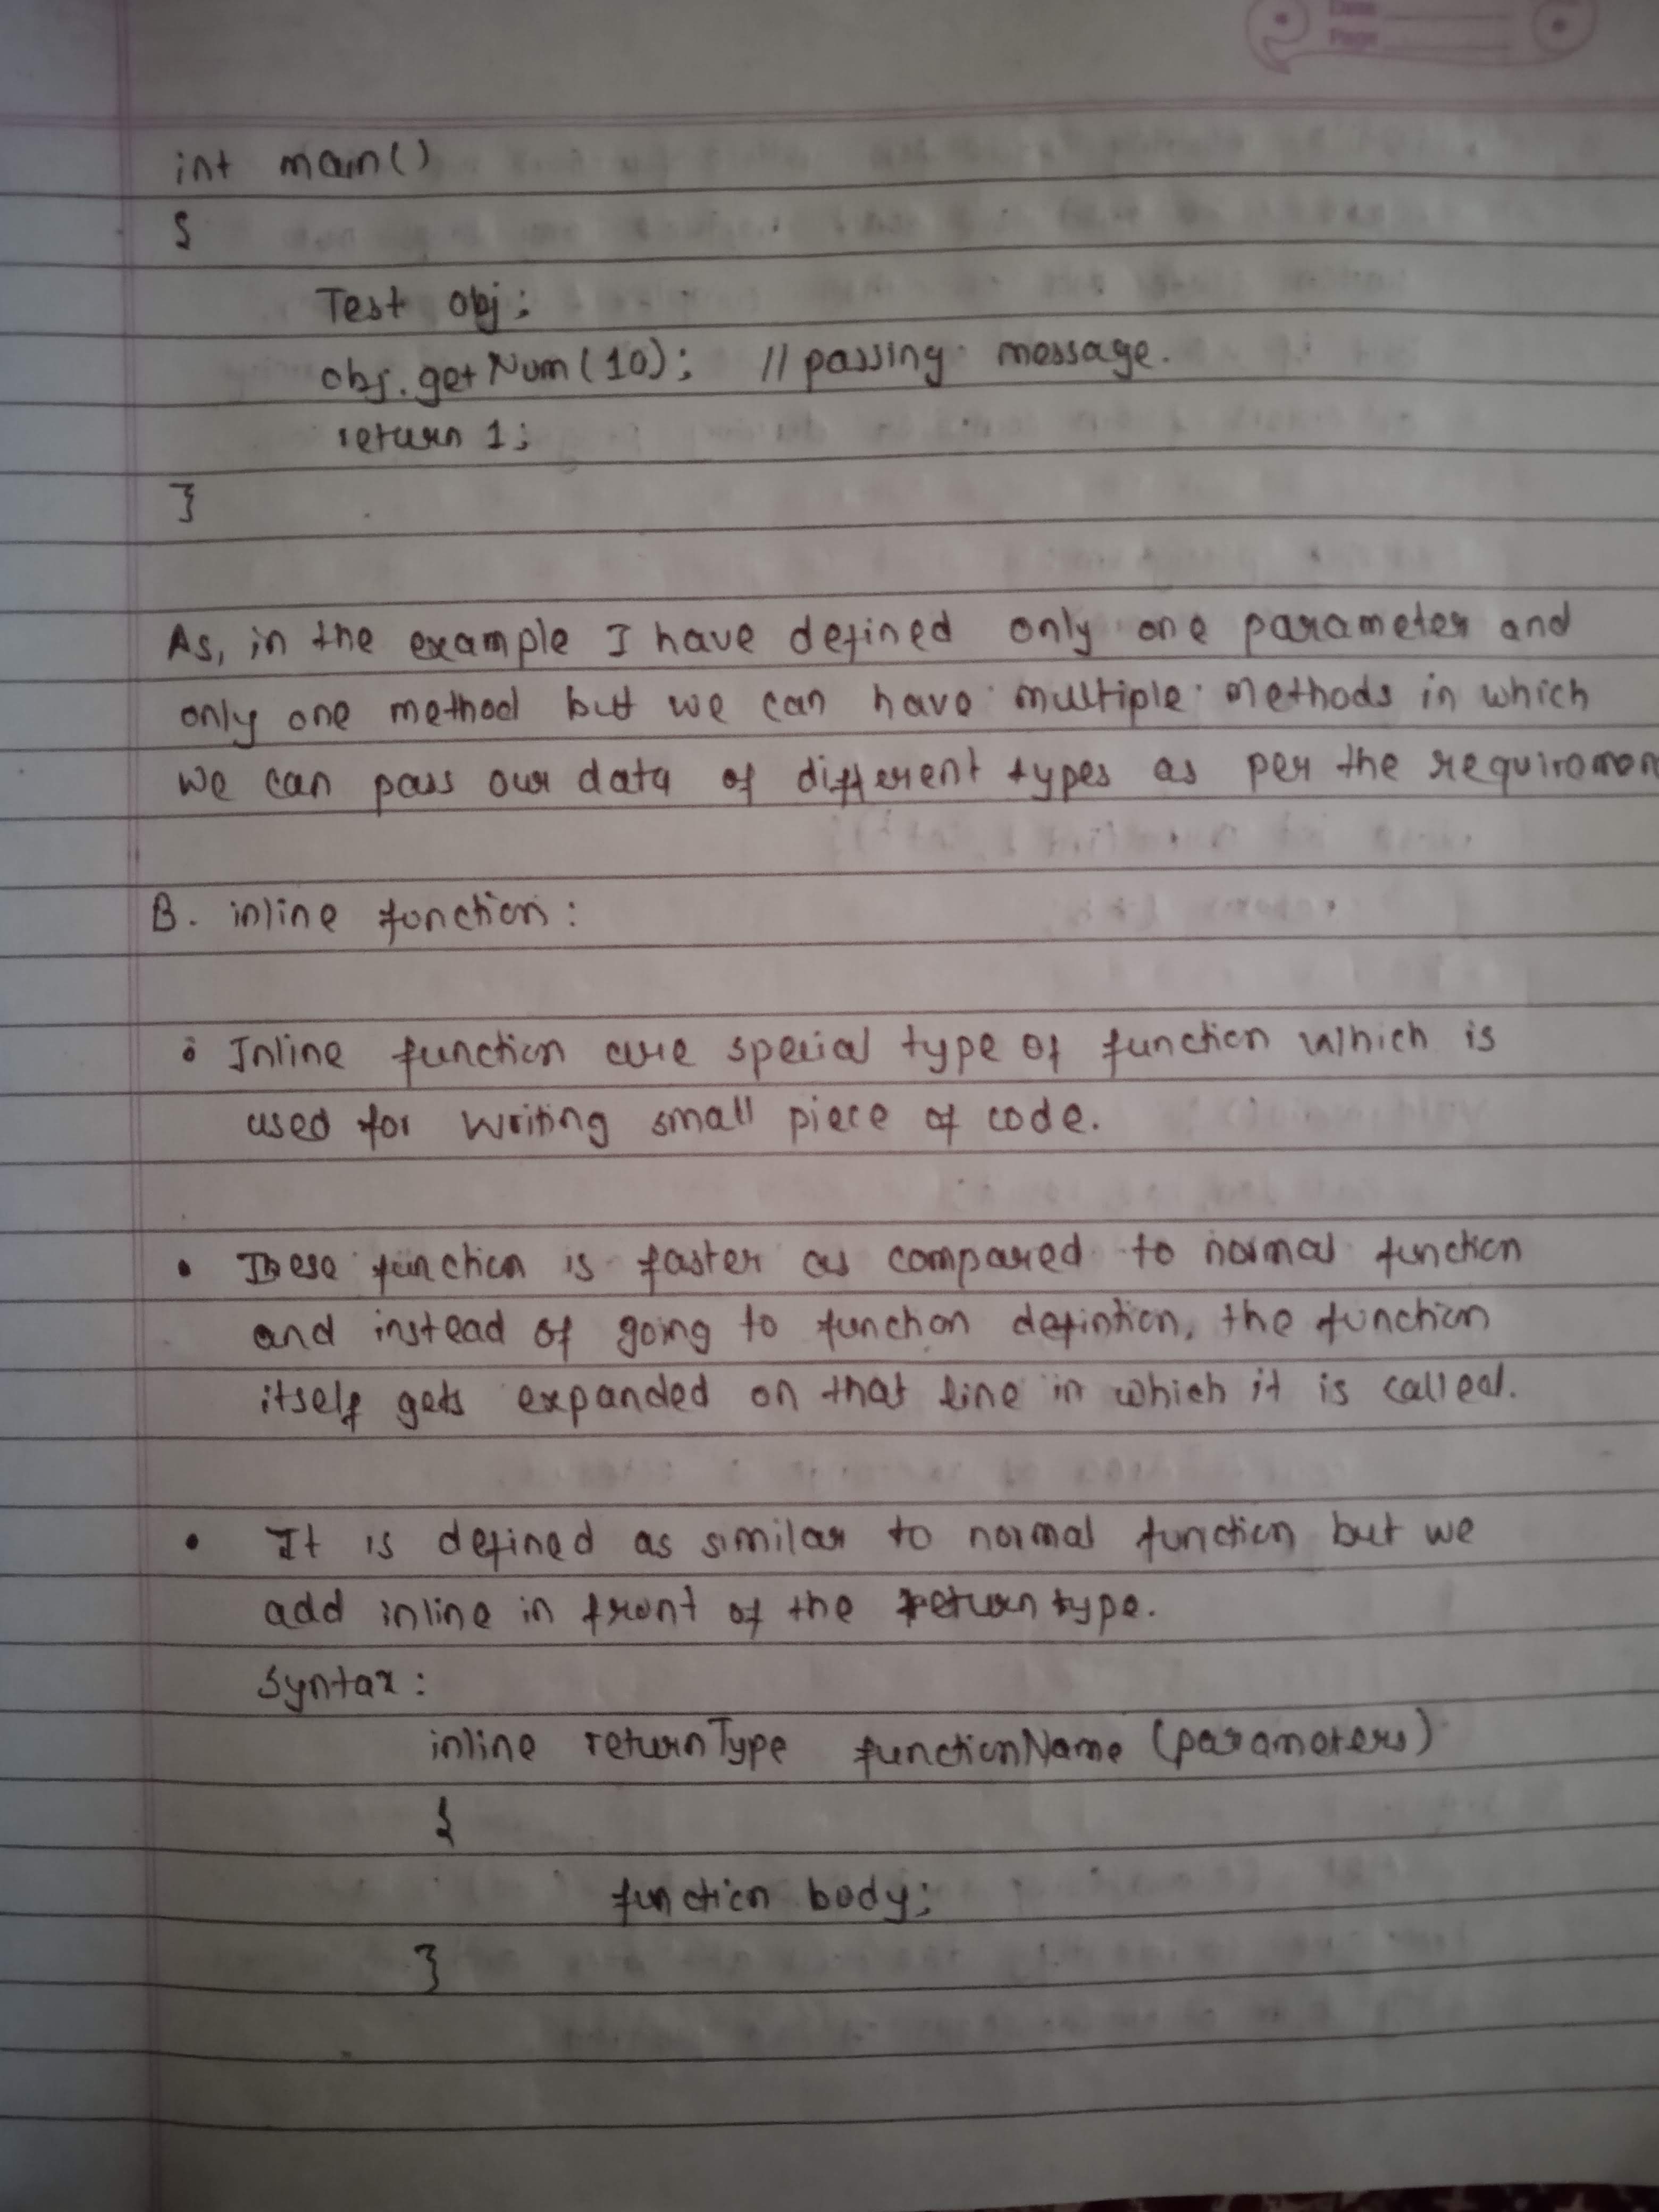 Date
Page
int main()
{
Test obj;
obj.getNum(10); // passing message.
return 1;
}
As, in the example I have defined only one parameter and
only one method but we can have multiple methods in which
we can pass our data of different types as per the requiremen
B. inline function:
• Inline function are special type of function which is
used for writing small piece of code.
• These function is faster as compared to normal function
and instead of going to function defintion, the function
itself gets expanded on that line in which it is called.
• It is defined as similar to normal function but we
add inline in front of the return type.
Syntax:
inline returnType functionName (parameters)
{
function body;
}